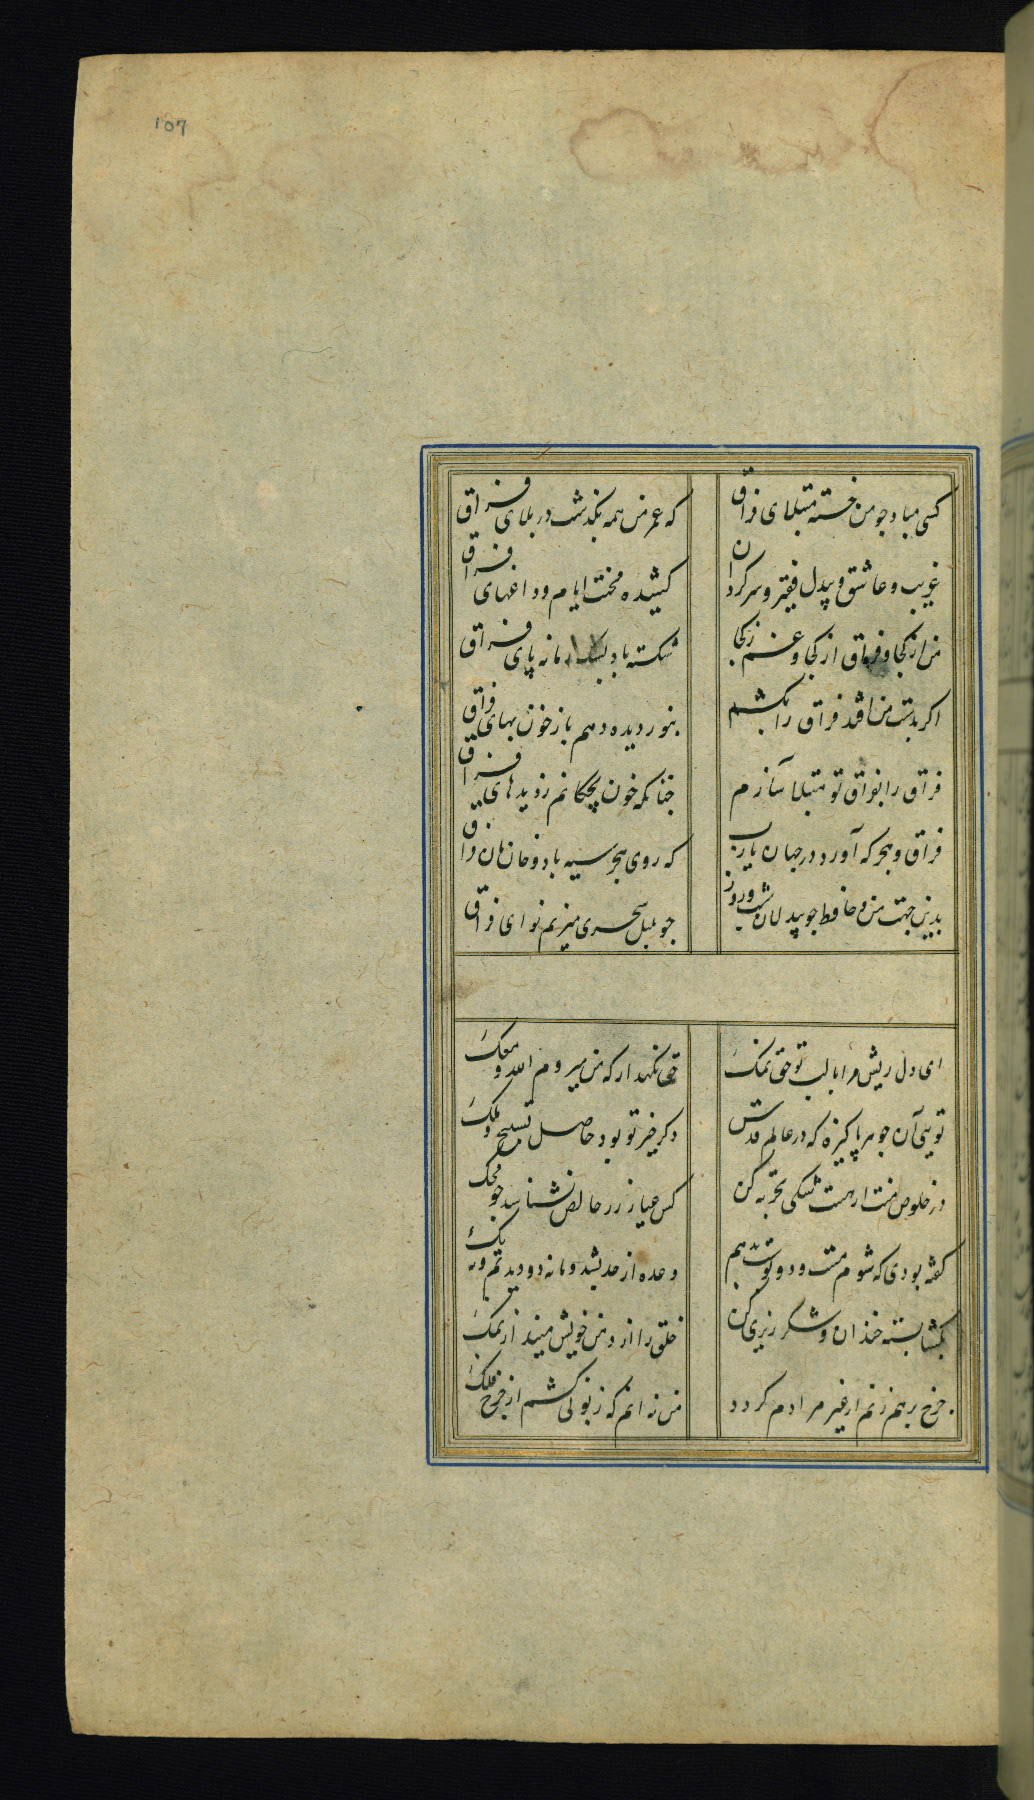 107
کسی مباد چو من خسته مبتلای فراق
که عمر من همه بگذشت در بلای فراق
غریب و عاشق و بیدل فقیر و سرکردان
کشیده محنت ایام و داغهای فراق
من از کجا و فراق از کجا و غم ز کجا
شکسته باد زمانه پای فراق
اکر بدست من افتد فراق را بکشم
بنور دیده دهم باز خون بهای فراق
فراق را بفراق تو مبتلا سازم
چنانکه خون بچکانم ز دیدهای فراق
فراق و هجر که آورد در جهان یارب
که روی هجر سیه باد و خان مان فراق
بدین جهت من و حافظ چو بیدلان شب و روز
چو بلبل سحری میزنم نوای فراق
ای دل ریش مرا بالب تو حق نمک
حق نکهدار که من میروم الله معک
تویی آن جوهر پاکیزه که در عالم قدس
ذکر خیر تو بود حاصل تسبیح ملک
در خلوص منت ار هست شکی تجربه کن
کس عیار زر خالص نشناسد چو محک
کفته بودی که شوم مست و دو بوست بدهم
وعده از حد بشد و ما نه دو دیدیم و نه یک
بکشا پسته خندان و شکر ریزی کن
خلق را از دهن خویش مینداز بشک
چرخ بر هم زنم ار غیر مرادم کردد
من نه انم که زبونی کشم از چرخ فلک